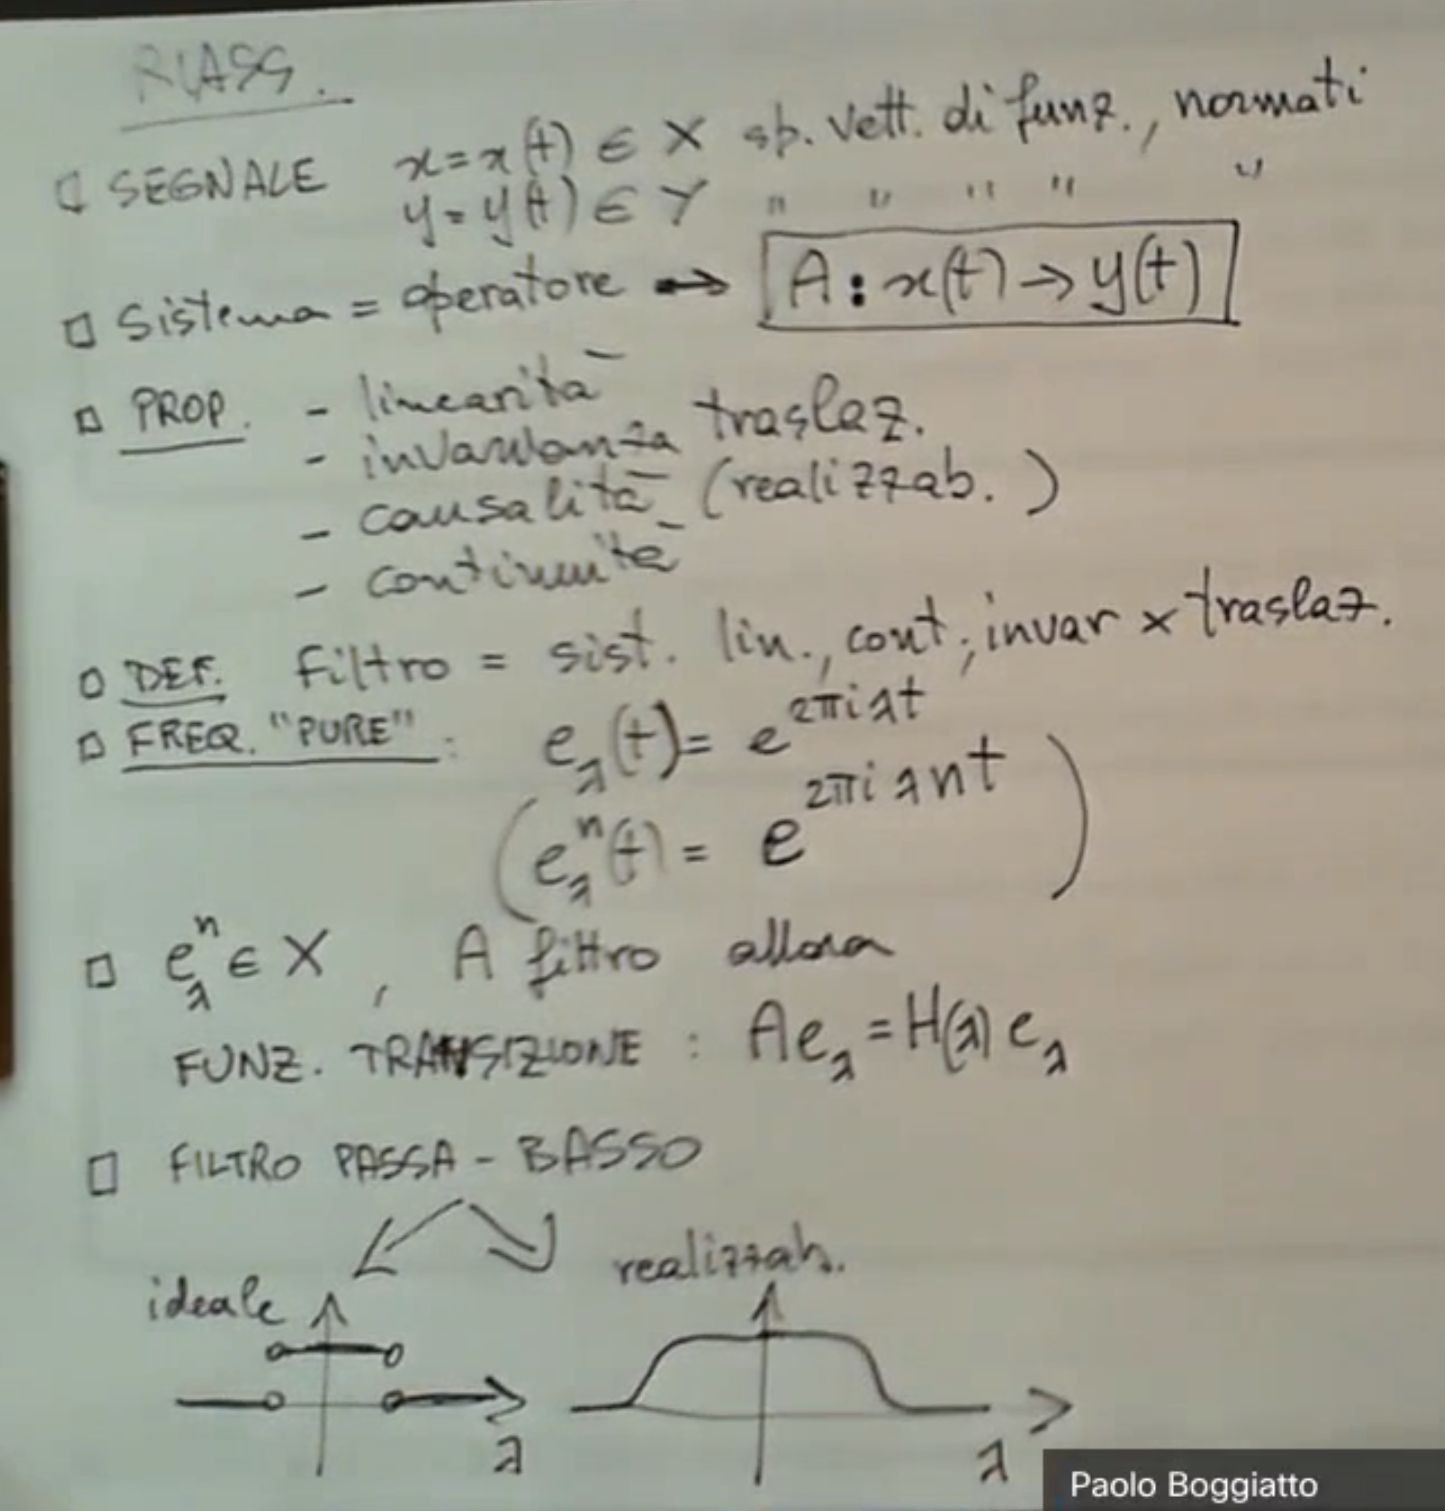 RIASS.
□ SEGNALE x = x(t) ∈ X sp. vett. di funz., normati
y = y(t) ∈ Y " " " " "
□ Sistema = operatore → A : x(t) → y(t)
□ PROP. - linearità
- invarianza traslaz.
- causalità (realizzab.)
- continuità
□ DEF. Filtro = sist. lin., cont., invar x traslaz.
□ FREQ. "PURE" : e_λ(t) = e^{2πiλt}
(e_λ^n(t) = e^{2πiλnt})
□ e_λ^n ∈ X , A filtro allora
FUNZ. TRANSIZIONE : Ae_λ = H(λ) e_λ
□ FILTRO PASSA - BASSO
ideale realizzab.
λ λ
Paolo Boggiatto